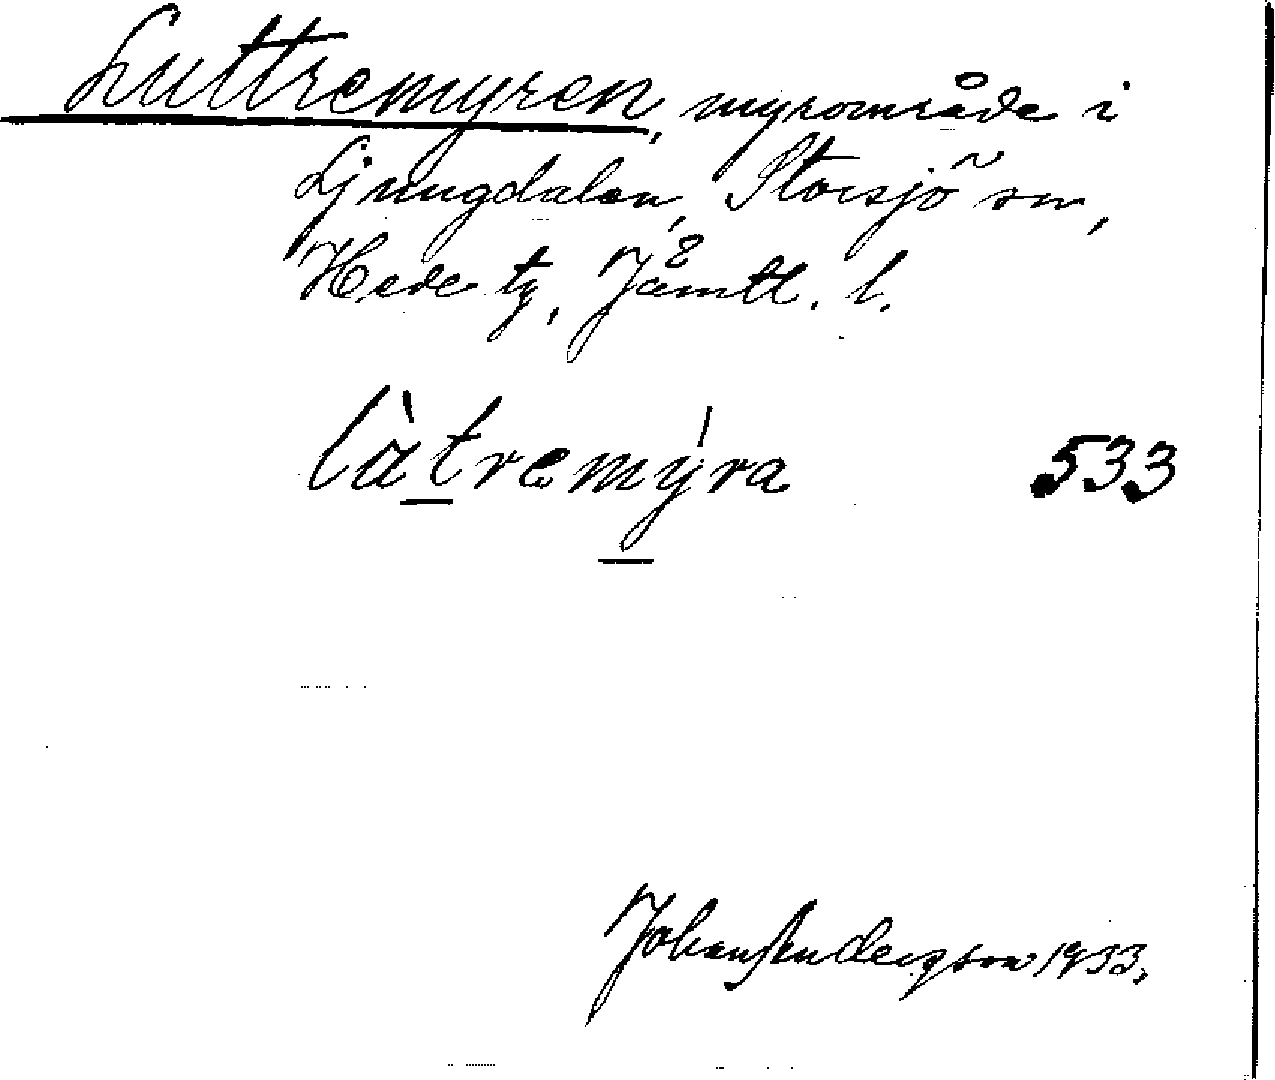 Luttremyren, myrområde i
Ljungdalen, Storsjö sn,
Hede tg, Jämtl. l.
làtremýra 533
Johan Andersson 1933.